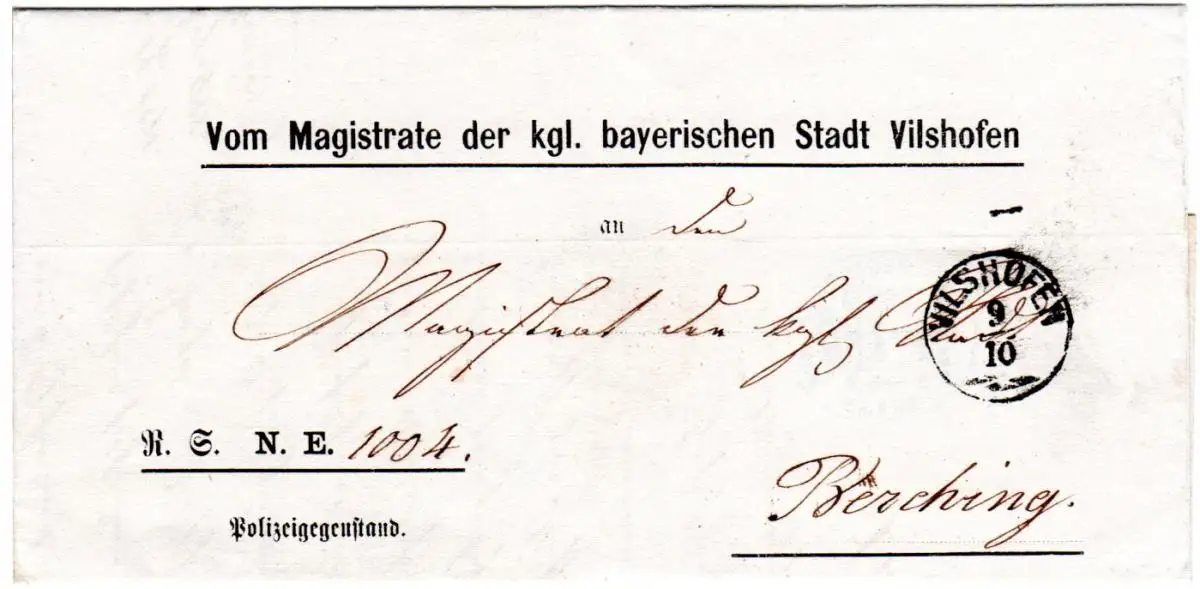 Vom Magistrate der kgl. bayerischen Stadt Vilshofen
an den
Magistrat der kgl. Stadt
VILSHOFEN
9
10
R. S. N. E. 1004.
Berching.
Polizeigegenstand.